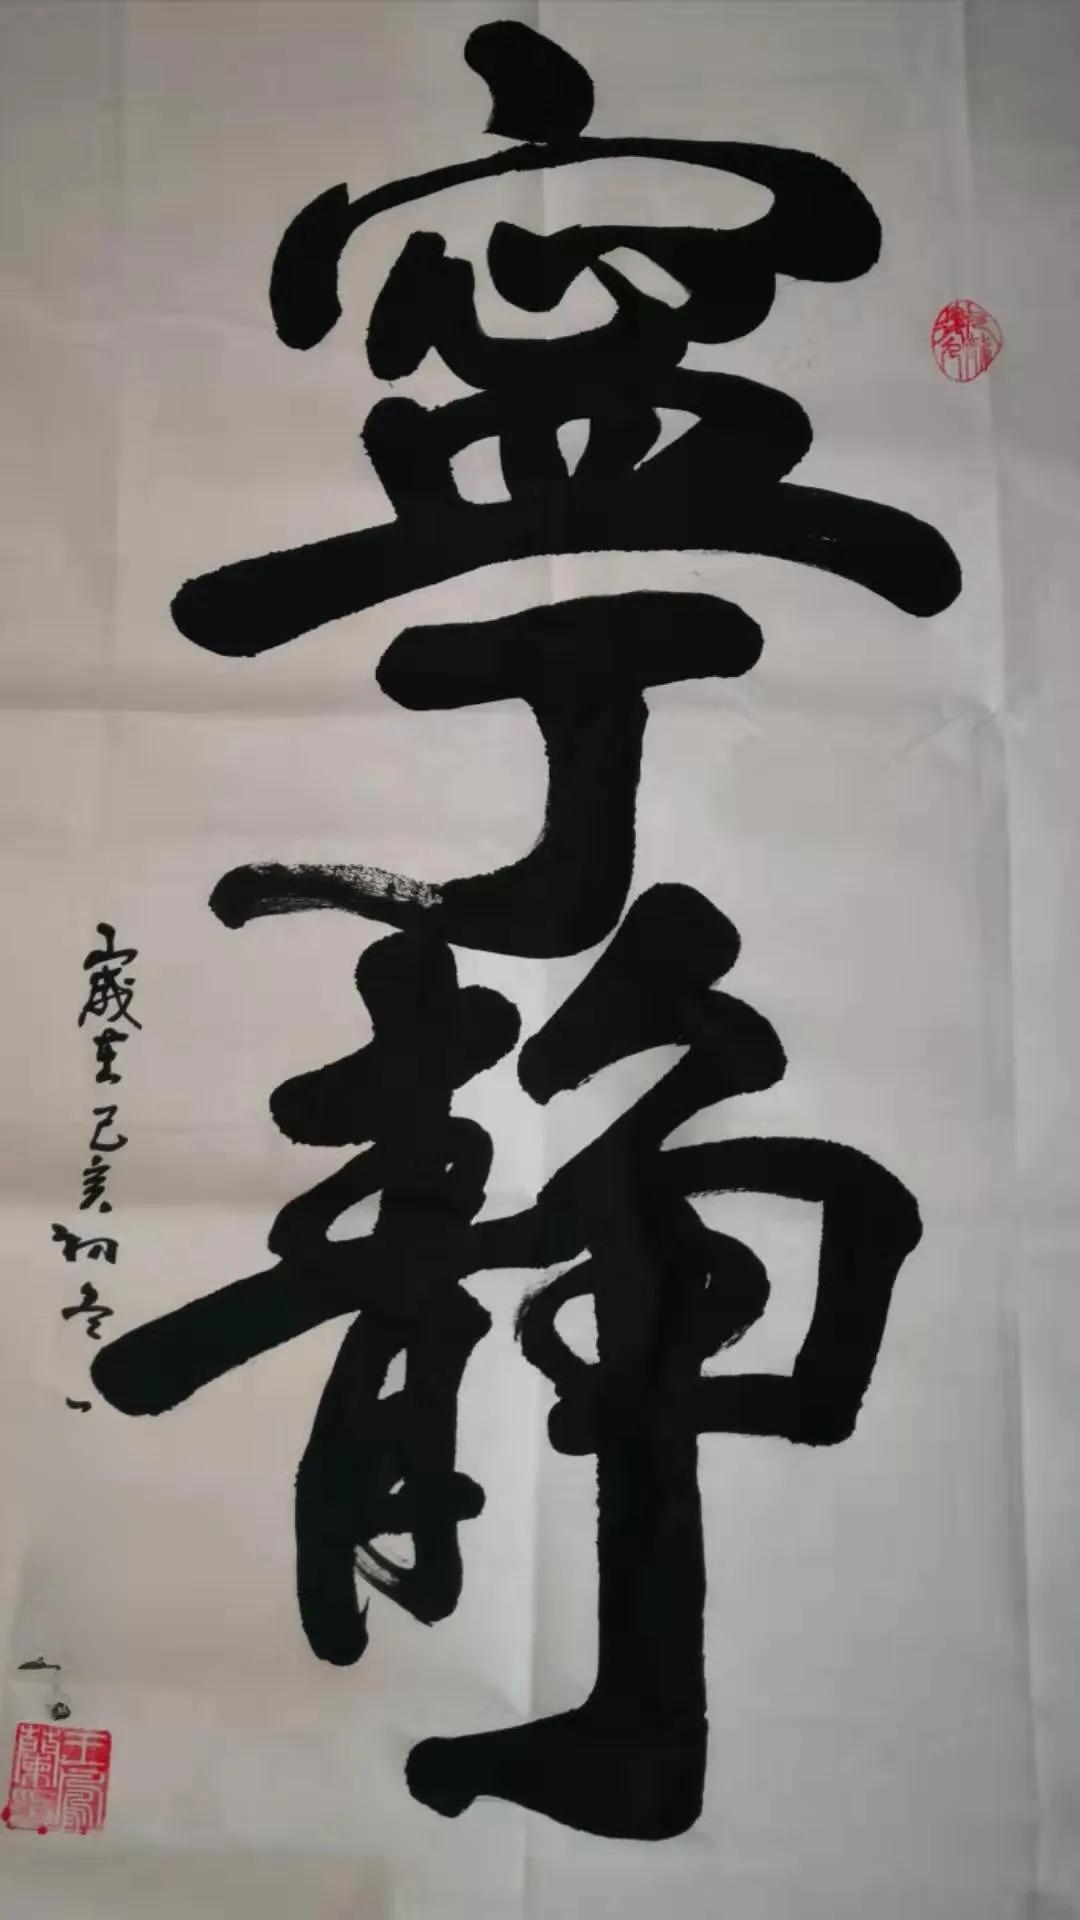 寧靜
歲在己亥初冬